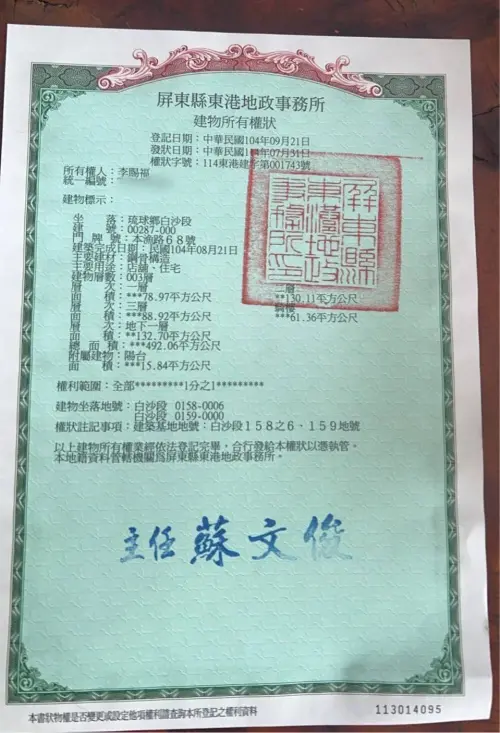 屏東縣東港地政事務所
建物所有權狀
登記日期：中華民國104年09月21日
發狀日期：中華民國114年07月31日
權狀字號：114東港建字第001743號
所有權人：李賜福
統一編號：
建物標示：
坐落：琉球鄉白沙段
建號：00287-000
門牌號：本漁路68號
建築完成日期：民國104年08月21日
主要建材：鋼骨構造
主要用途：店舖、住宅
建物層數：003層
層次：一層 二層
面積：***78.97平方公尺 **130.11平方公尺
層次：三層 騎樓
面積：***88.92平方公尺 ***61.36平方公尺
層次：地下一層
面積：**132.70平方公尺
總面積：***492.06平方公尺
附屬建物：陽台
面積：***15.84平方公尺
權利範圍：全部*********1分之1*********
建物坐落地號：白沙段 0158-0006
白沙段 0159-0000
權狀註記事項：建築基地地號：白沙段158之6、159地號
以上建物所有權業經依法登記完畢，合行發給本權狀以憑執管。
本地籍資料管轄機關為屏東縣東港地政事務所。
屏東縣東港地政事務所印
主任 蘇文俊
本書狀物權是否變更或設定他項權利請查詢本所登記之權利資料
113014095